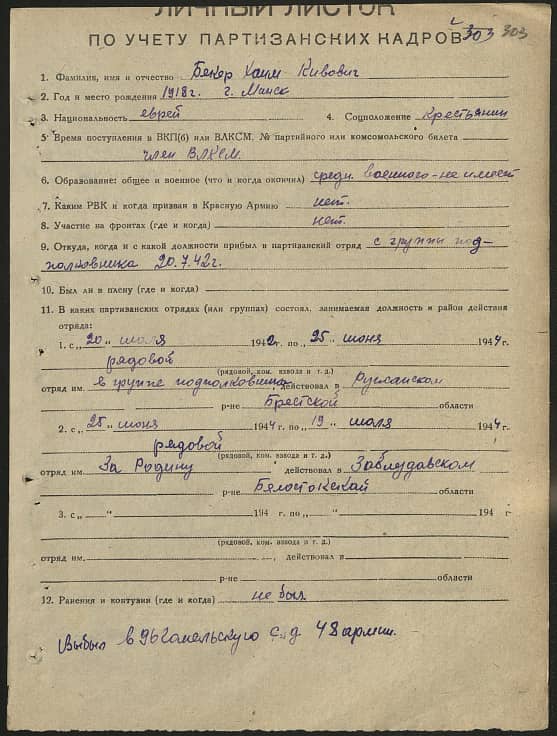 ЛИЧНЫЙ ЛИСТОК
ПО УЧЕТУ ПАРТИЗАНСКИХ КАДРОВ 303 303
1. Фамилия, имя и отчество Бекер Хаим Кивович
2. Год и место рождения 1918 г. г. Минск
3. Национальность еврей 4. Соцположение Крестьянин
5. Время поступления в ВКП(б) или ВЛКСМ, № партийного или комсомольского билета
член ВЛКСМ.
6. Образование: общее и военное (что и когда окончил) средн. военного-не имеет
7. Каким РВК и когда призван в Красную Армию нет.
8. Участие на фронтах (где и когда) нет.
9. Откуда, когда и с какой должности прибыл в партизанский отряд с группы под-
полковника 20.7.42г.
10. Был ли в плену (где и когда)
11. В каких партизанских отрядах (или группах) состоял, занимаемая должность и район действия
отряда:
1. с „20„ июля 1942г. по „25„ июня 1944 г.
рядовой
(рядовой, ком. взвода и т. д.)
отряд им. в группе подполковника действовал в Ружанском
р-не Брестской области
2. с „25„ июня 1944 г. по „19„ июля 1944 г.
рядовой
(рядовой, ком. взвода и т. д.)
отряд им. За Родину действовал в Заблудавском
р-не Бялостокской области
3. с „ “ 194 г. по „ “ 194 г.
(рядовой, ком. взвода и т. д.)
отряд им. , действовал в
р-не области
12. Ранения и контузия (где и когда) не был.
Выбыл в 96 Гомельскую с.д. 48 армии.